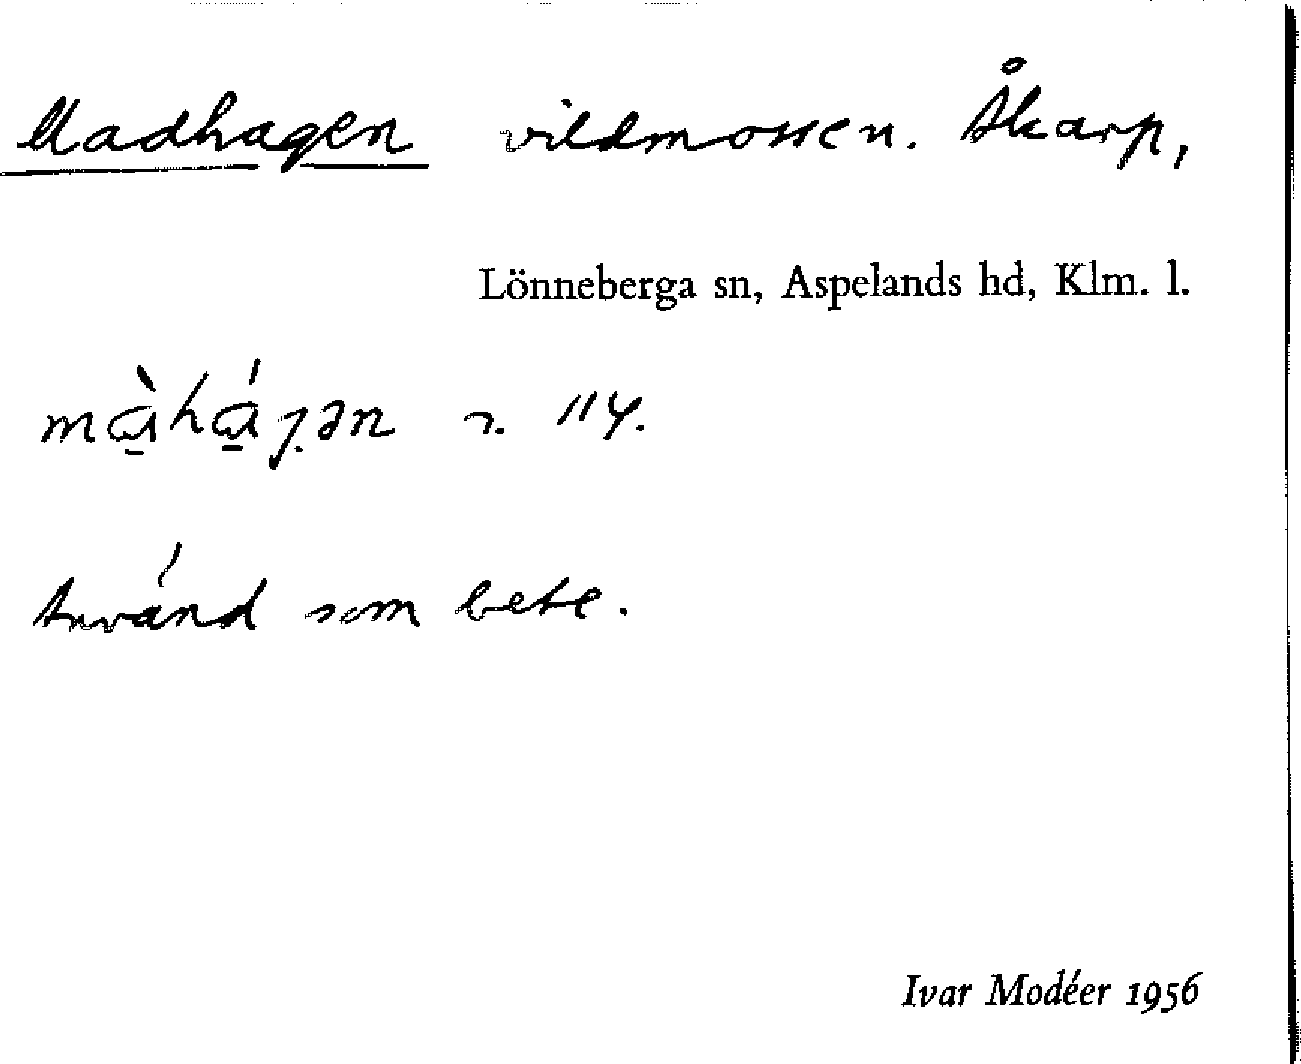 Madhagen vildmossen. Åkarp,
Lönneberga sn, Aspelands hd, Klm. l.
mɑ̠̀hɑ̠́ꞡ̣ən 2. 114.
Använd som bete.
Ivar Modéer 1956